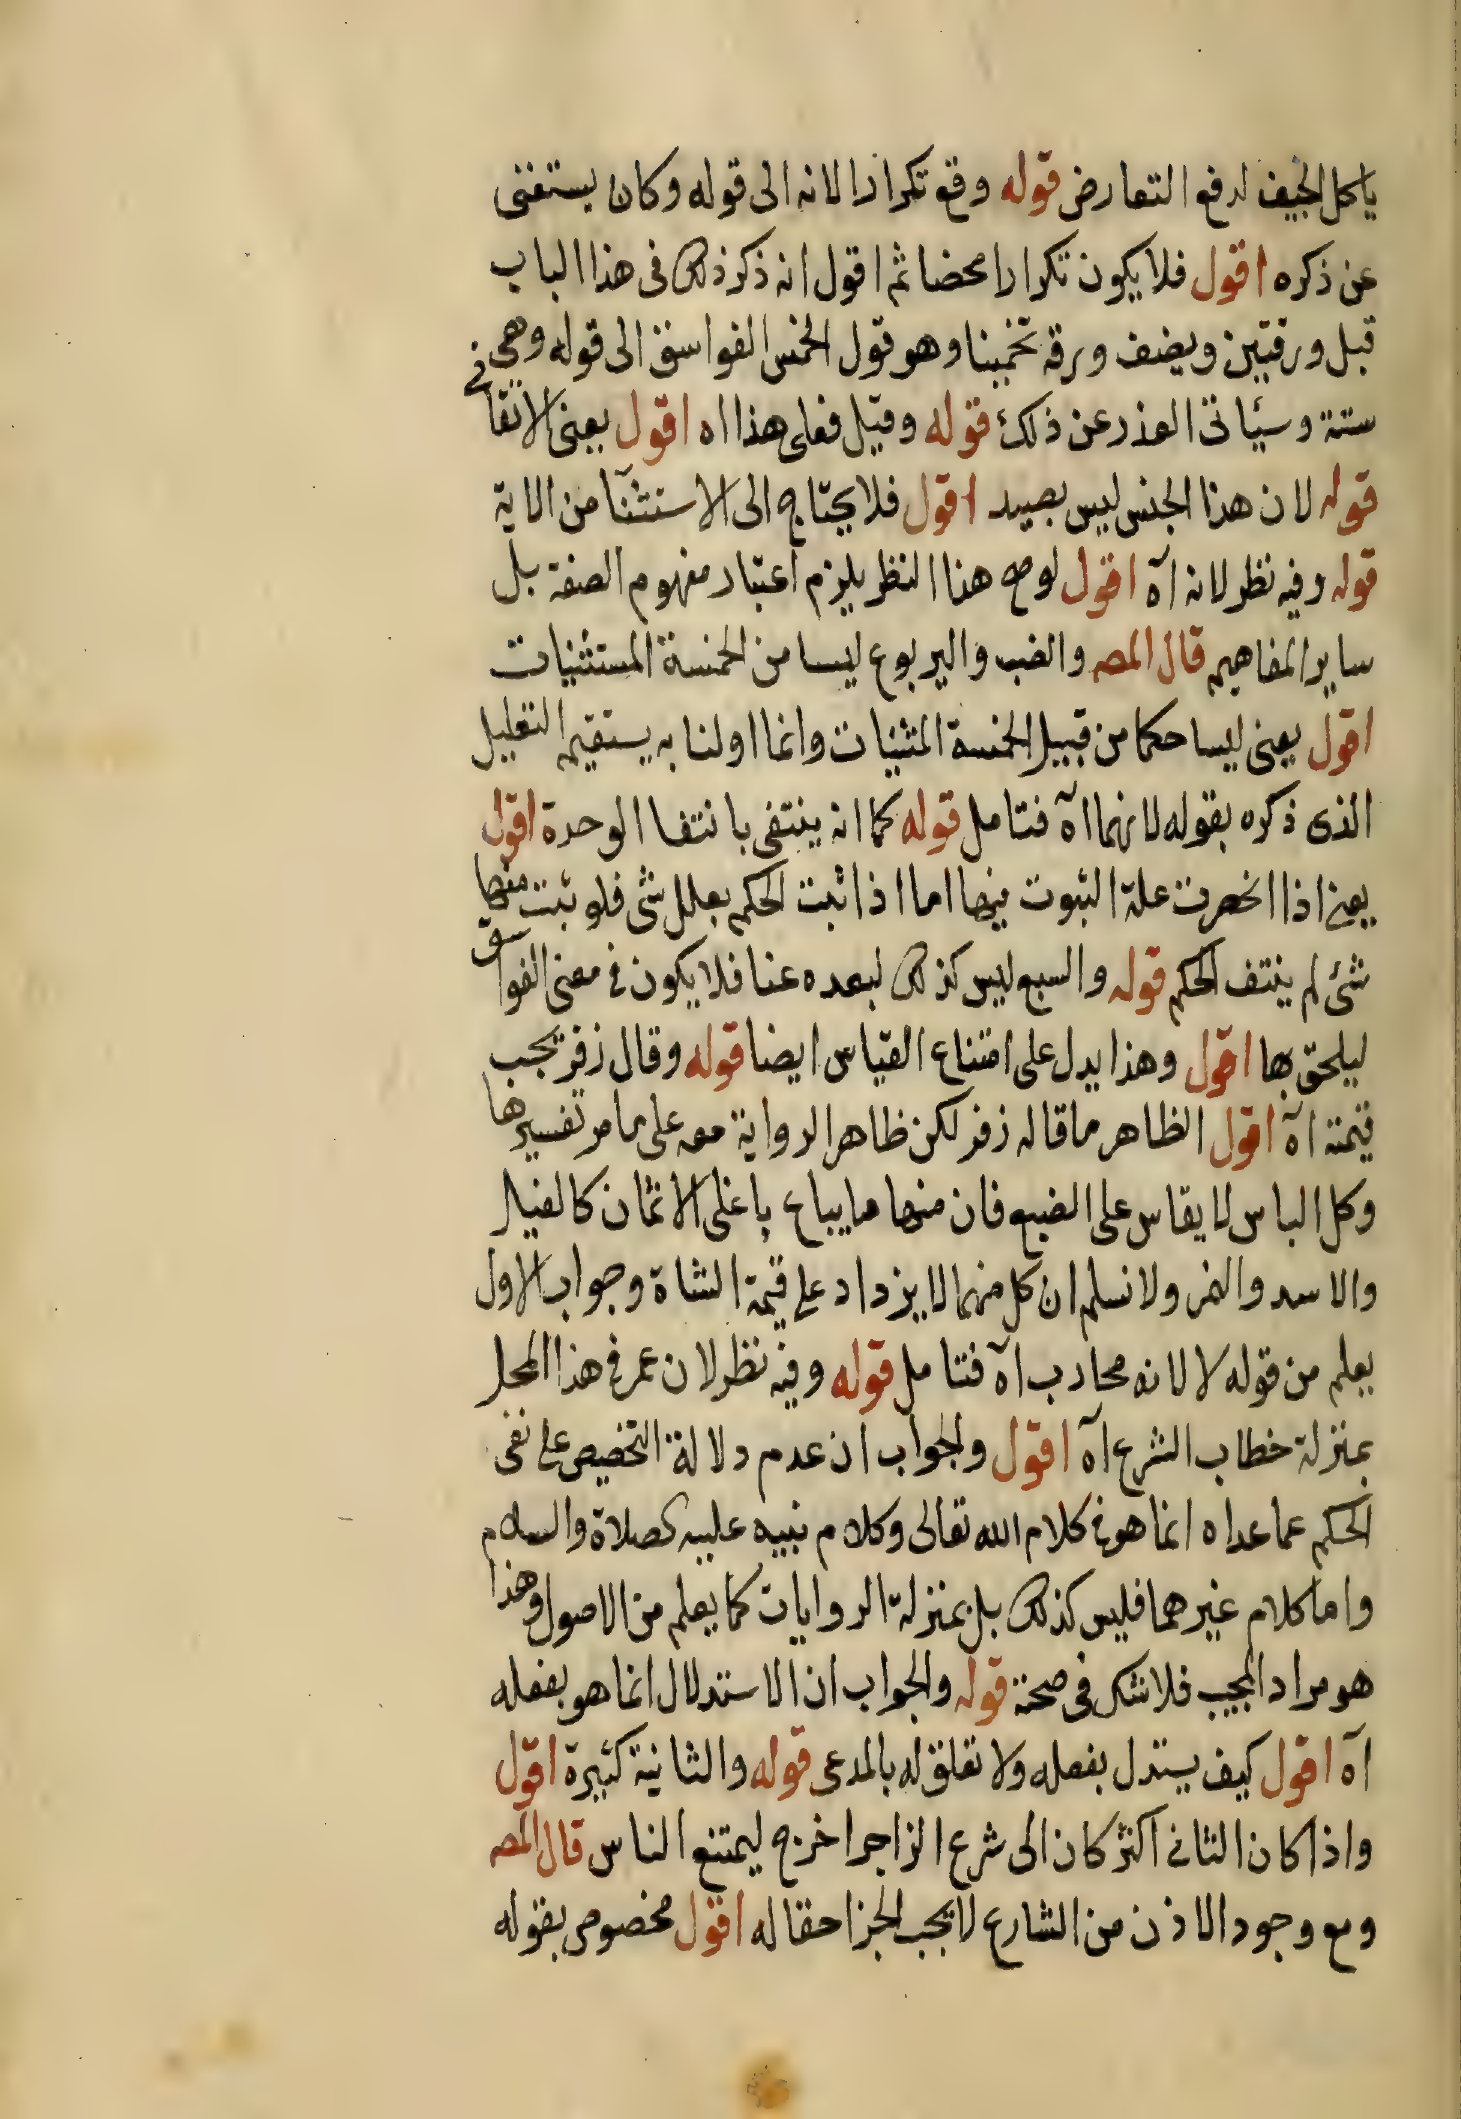 ياكل الجيف لدفع التعارض قوله وقع تكرارا لانه الى قوله وكان يستغنى
عن ذكره اقول فلا يكون تكرارا محضا ثم اقول انه ذكر ذلك فى هذا الباب
قبل ورقتين ونصف ورقة تخمينا وهو قول الخمس الفواسق الى قوله وهى
ستة وسيأتى العذر عن ذلك قوله وقيل فعلى هذا اه اقول يعنى الاتقانى
قوله لان هذا الجنس ليس بصيد اقول فلا يحتاج الى الاستثنآ من الاية
قوله وفيه نظر لانه آه اقول لو صح هذا النظر يلزم اعتبار مفهوم الصفة بل
ساير المفاهيم قال المصـ والضب واليربوع ليسا من الخمسة المستثنيات
اقول يعنى ليسا حكما من قبيل الخمسة المثنيات وانما اولنا به يستقيم التعليل
الذى ذكره بقوله لانهما آه فتامل قوله كما انه ينتفى بانتفا الوحدة اقول
يعنى اذا انحصرت علة الثبوت فيها اما اذا ثبت الحكم بعلل شى فلو ثبت منها
شئ لم ينتف الحكم قوله والسبع ليس كذلك لبعده عنا فلا يكون فى معنى الفواسق
ليلحق بها اقول وهذا يدل على امتناع القياس ايضا قوله وقال زفر تجب
قيمته آه اقول الظاهر ما قاله زفر لكن ظاهر الرواية معه على ما مر تفسيرها
وكل الباس لا يقاس على الضبع فان منها ما يباع باغلى الاثمان كالفيل
والاسد والنمر ولا نسلم ان كل منهما لا يزداد على قيمة الشاة وجواب الاول
يعلم من قوله لا لانه محارب آه فتامل قوله وفيه نظر لان عمر فى هذا المحل
بمنزلة خطاب الشرع آه اقول والجواب ان عدم دلالة التخصيص على نفى
الحكم عما عداه انما هو فى كلام الله تعالى وكلام نبيه عليه الصلاة والسلام
واما كلام غيرهما فليس كذلك بل بمنزلة الروايات كما يعلم من الاصول وهذا
هو مراد المجيب فلا شك فى صحته قوله والجواب ان الاستدلال انما هو بفعله
آه اقول كيف يستدل بفعله ولا تعلق له بالمدعى قوله والثانية كثيرة اقول
واذا كان الثانى اكثر كان الى شرع الزاجر احرج ليمتنع الناس قال المصـ
ومع وجود الاذن من الشارع لا يجب الجزا حقا له اقول مخصوص بقوله